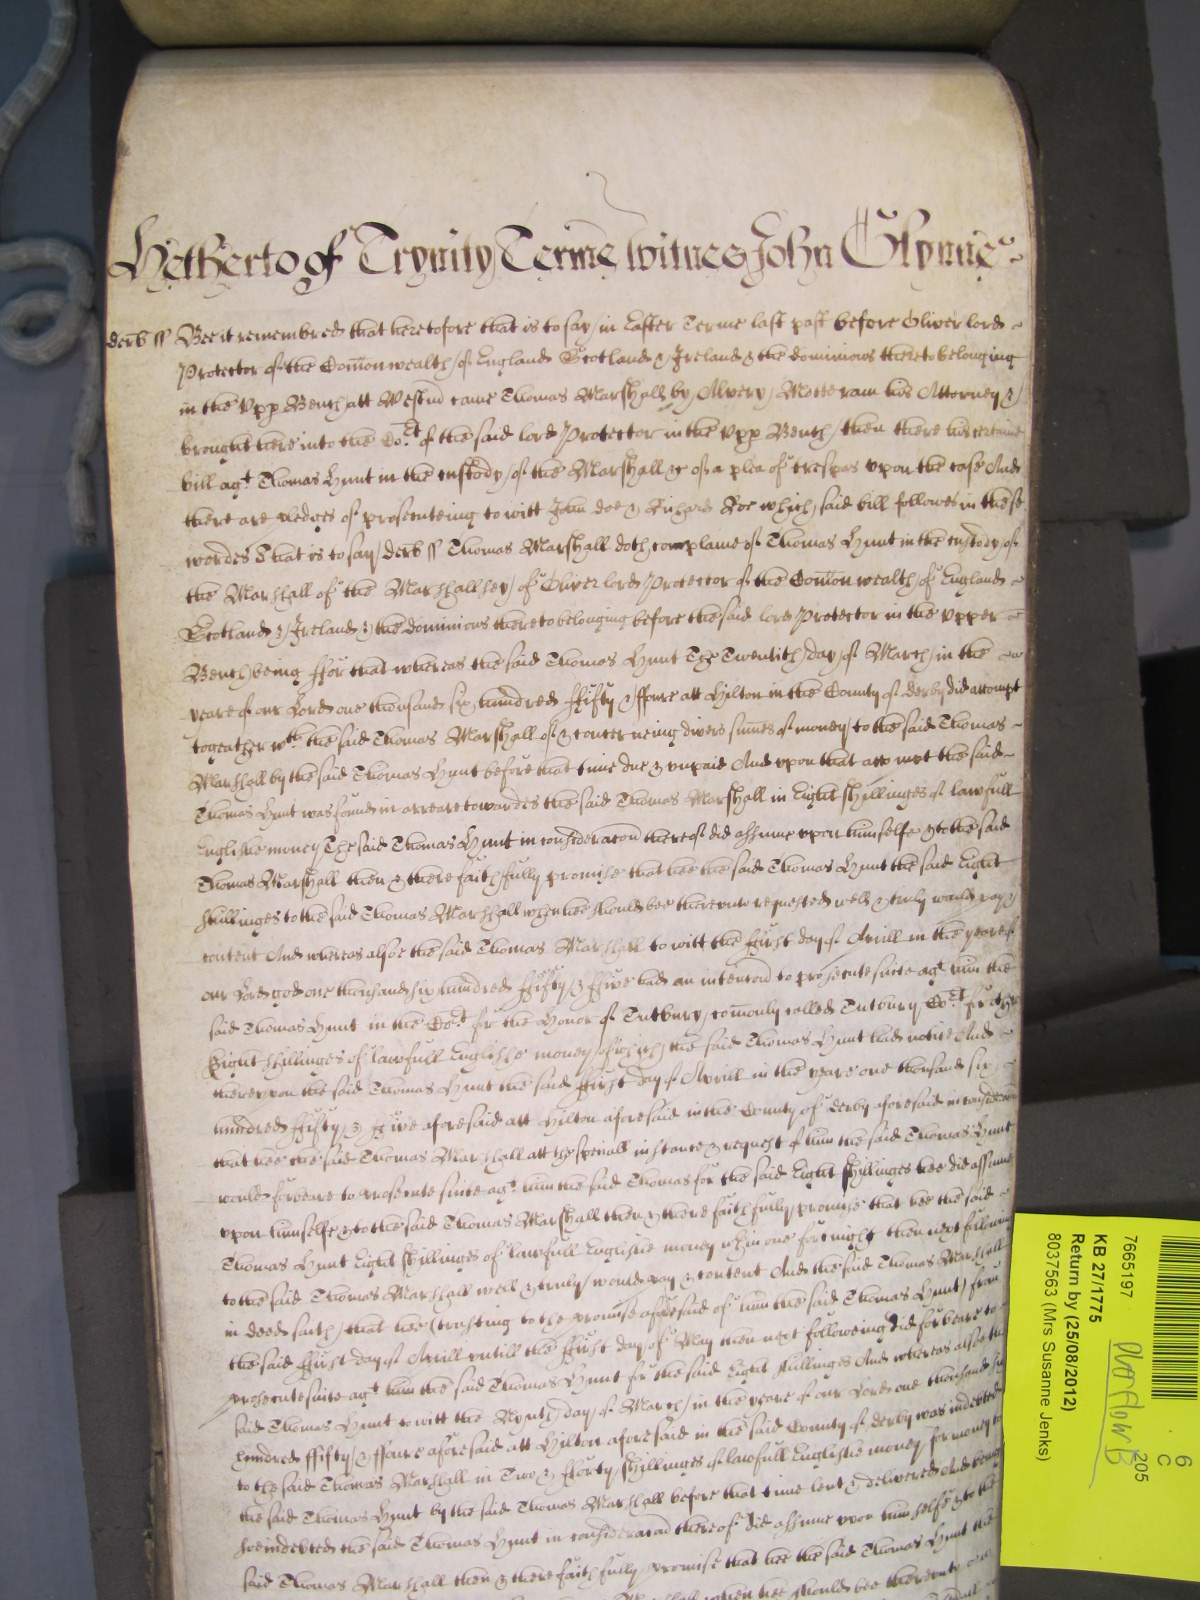 Hetherto of Trynity Terme witnes John Glynne
derb ss Bee it remembred that heretofore that is to say in Easter Terme last past before Oliver lord
Protector of the Com̄on wealth of England Scotland & Ireland & the dominions thereto belonging
in the Upp Bench att Westm̄ came Thomas Marshall by Alvery Motteram his Attorney &
brought here into the Cort of the said lord Protector in the Upp Bench then there his certaine
bill agt Thomas Hunt in the custody of the Marshall &c of a plea of trespas upon the case And
there are pledges of prosecuteing to witt John doe & Richard Roe which said bill followes in these
wordes That is to say derb ss Thomas Marshall doth complaine of Thomas Hunt in the custody of
the Marshall of the Marshallsey of Oliver lord Protector of the Com̄on wealth of England
Scotland & Ireland & the dominions thereto belonging before the said lord Protector in the Upper
Bench being ffor that whereas the said Thomas Hunt The Twentith day of March in the
yeare of our Lord one thousand six hundred ffifty & ffoure att Hilton in the County of derby did accompt
togeather wth the said Thomas Marshall of & concerneing divers sum̄es of money to the said Thomas
Marshall by the said Thomas Hunt before that time due & unpaid And upon that accompt the said
Thomas Hunt was found in arreare towardes the said Thomas Marshall in Eight shillinges of lawfull
Englishe money The said Thomas Hunt in consideracon thereof did assume upon himselfe & to the said
Thomas Marshall then & there faithfully promise that hee the said Thomas Hunt the said Eight
shillinges to the said Thomas Marshall when hee should bee thereunto requested well & truly would pay &
content And whereas alsoe the said Thomas Marshall to witt the ffirst day of Aprill in the yeare of
our Lord god one thousand six hundred ffifty & ffive had an intencon to prosecute suite agt him the
said Thomas Hunt in the Cort for the Honor of Tutbury com̄only called Tutbury Cort for other
Eight shillinges of lawfull Englishe money of which the said Thomas Hunt had notice And
thereupon the said Thomas Hunt the said ffirst day of Aprill in the yeare one thousand six
hundred ffifty & ffive aforesaid att Hilton aforesaid in the County of derby aforesaid in consideracon
that hee the said Thomas Marshall att the speciall instance & request of him the said Thomas Hunt
would forbeare to prosecute suite agt him the said Thomas for the said Eight shillinges hee did assume
upon himselfe & to the said Thomas Marshall then & there faithfully promise that hee the said
Thomas Hunt Eight shillinges of lawfull Englishe money wthin one fortnight then next followeing
to the said Thomas Marshall well & truly would pay & content And the said Thomas Marshall
in deed saith that hee (trusting to the promise aforesaid of him the said Thomas Hunt) from
the said ffirst day of Aprill untill the ffirst day of May then next followeing did forbeare to
prosecute suite agt him the said Thomas Hunt for the said Eight shillinges And whereas alsoe the
said Thomas Hunt to witt the day of March in the yeare of our Lord one thousand six
hundred ffifty & ffoure aforesaid att Hilton aforesaid in the said County of derby was indebted
to the said Thomas Marshall in Two & fforty shillinges of lawfull Englishe money for money to
the said Thomas Hunt by the said Thomas Marshall before that time lent & delivered And being
soe indebted the said Thomas Hunt in consideracon thereof did assume upon himselfe & to the
said Thomas Marshall then & there faithfully promise that hee the said Thomas Hunt the
Marshall when hee should bee thereunto
7665197
KB 27/1775
Return by (25/08/2012)
8037563 (Mrs Susanne Jenks)
6
C
205